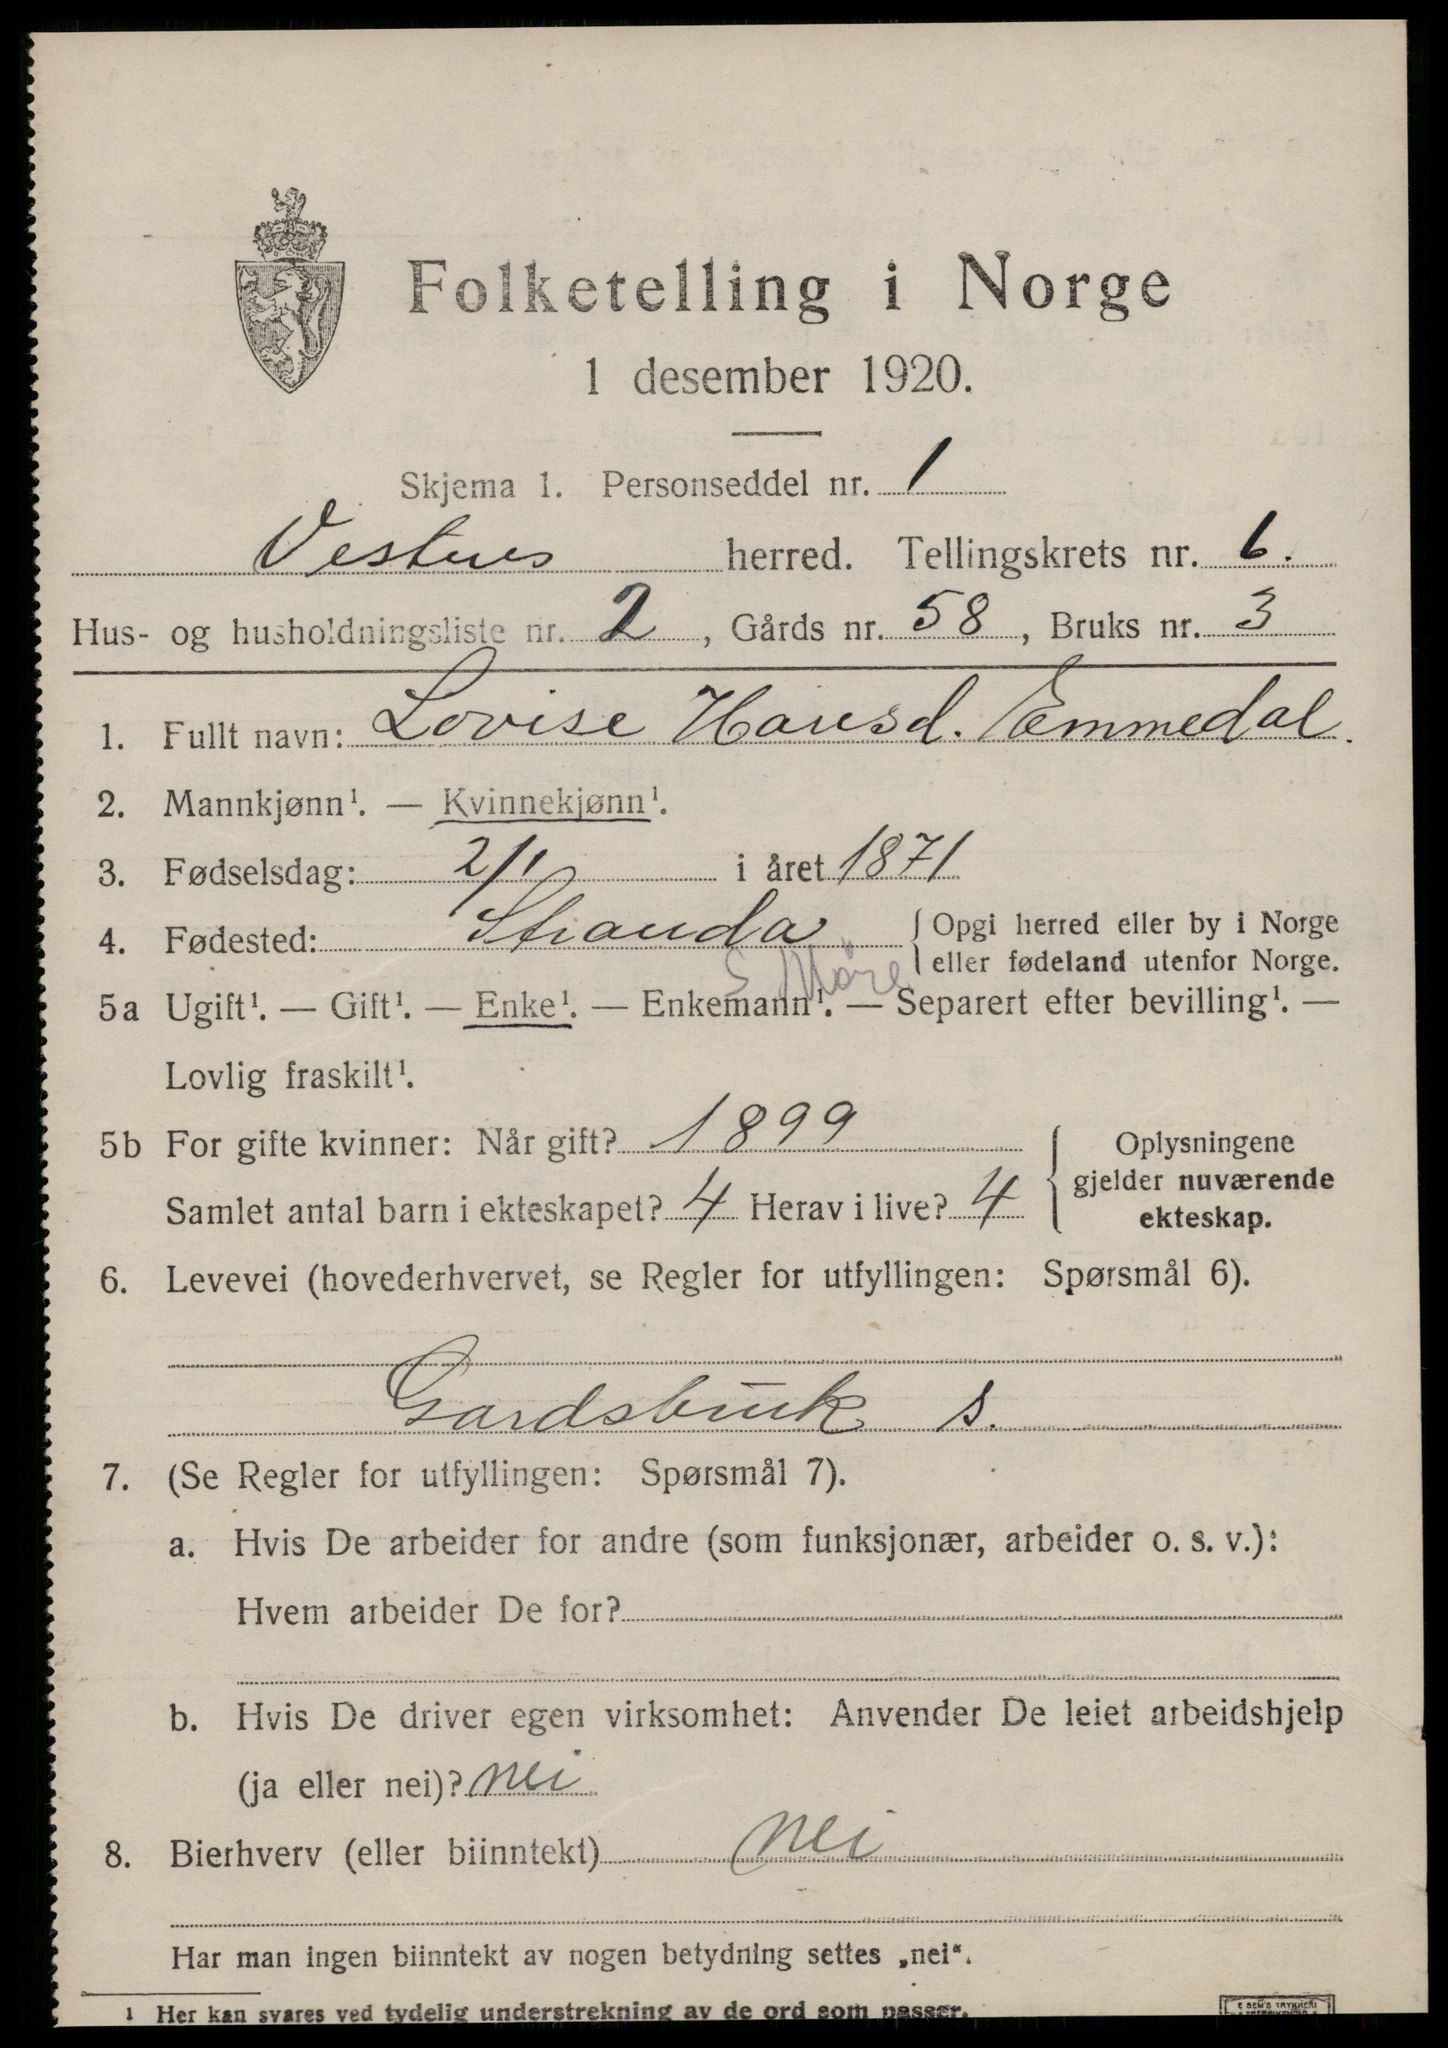 Folketelling i Norge
1 desember 1920.
Skjema 1. Personseddel nr. 1
Vestnes herred. Tellingskrets nr. 6.
Hus- og husholdningsliste nr. 2, Gårds nr. 58, Bruks nr. 3
1. Fullt navn: Lovise Hansd. Emmedal.
2. Mannkjønn¹. — Kvinnekjønn¹.
3. Fødselsdag: 2/1 i året 1871
4. Fødested: Stranda { Opgi herred eller by i Norge
eller fødeland utenfor Norge.
S Møre
5a Ugift¹. — Gift¹. — Enke¹. — Enkemann¹. — Separert efter bevilling¹. —
Lovlig fraskilt¹.
5b For gifte kvinner: Når gift? 1899
Samlet antal barn i ekteskapet? 4 Herav i live? 4
{ Oplysningene
gjelder nuværende
ekteskap.
6. Levevei (hovederhvervet, se Regler for utfyllingen: Spørsmål 6).
Gardsbruk s.
7. (Se Regler for utfyllingen: Spørsmål 7).
a. Hvis De arbeider for andre (som funksjonær, arbeider o. s. v.):
Hvem arbeider De for?
b. Hvis De driver egen virksomhet: Anvender De leiet arbeidshjelp
(ja eller nei)? nei
8. Bierhverv (eller biinntekt) nei
Har man ingen biinntekt av nogen betydning settes „nei“.
1 Her kan svares ved tydelig understrekning av de ord som passer.